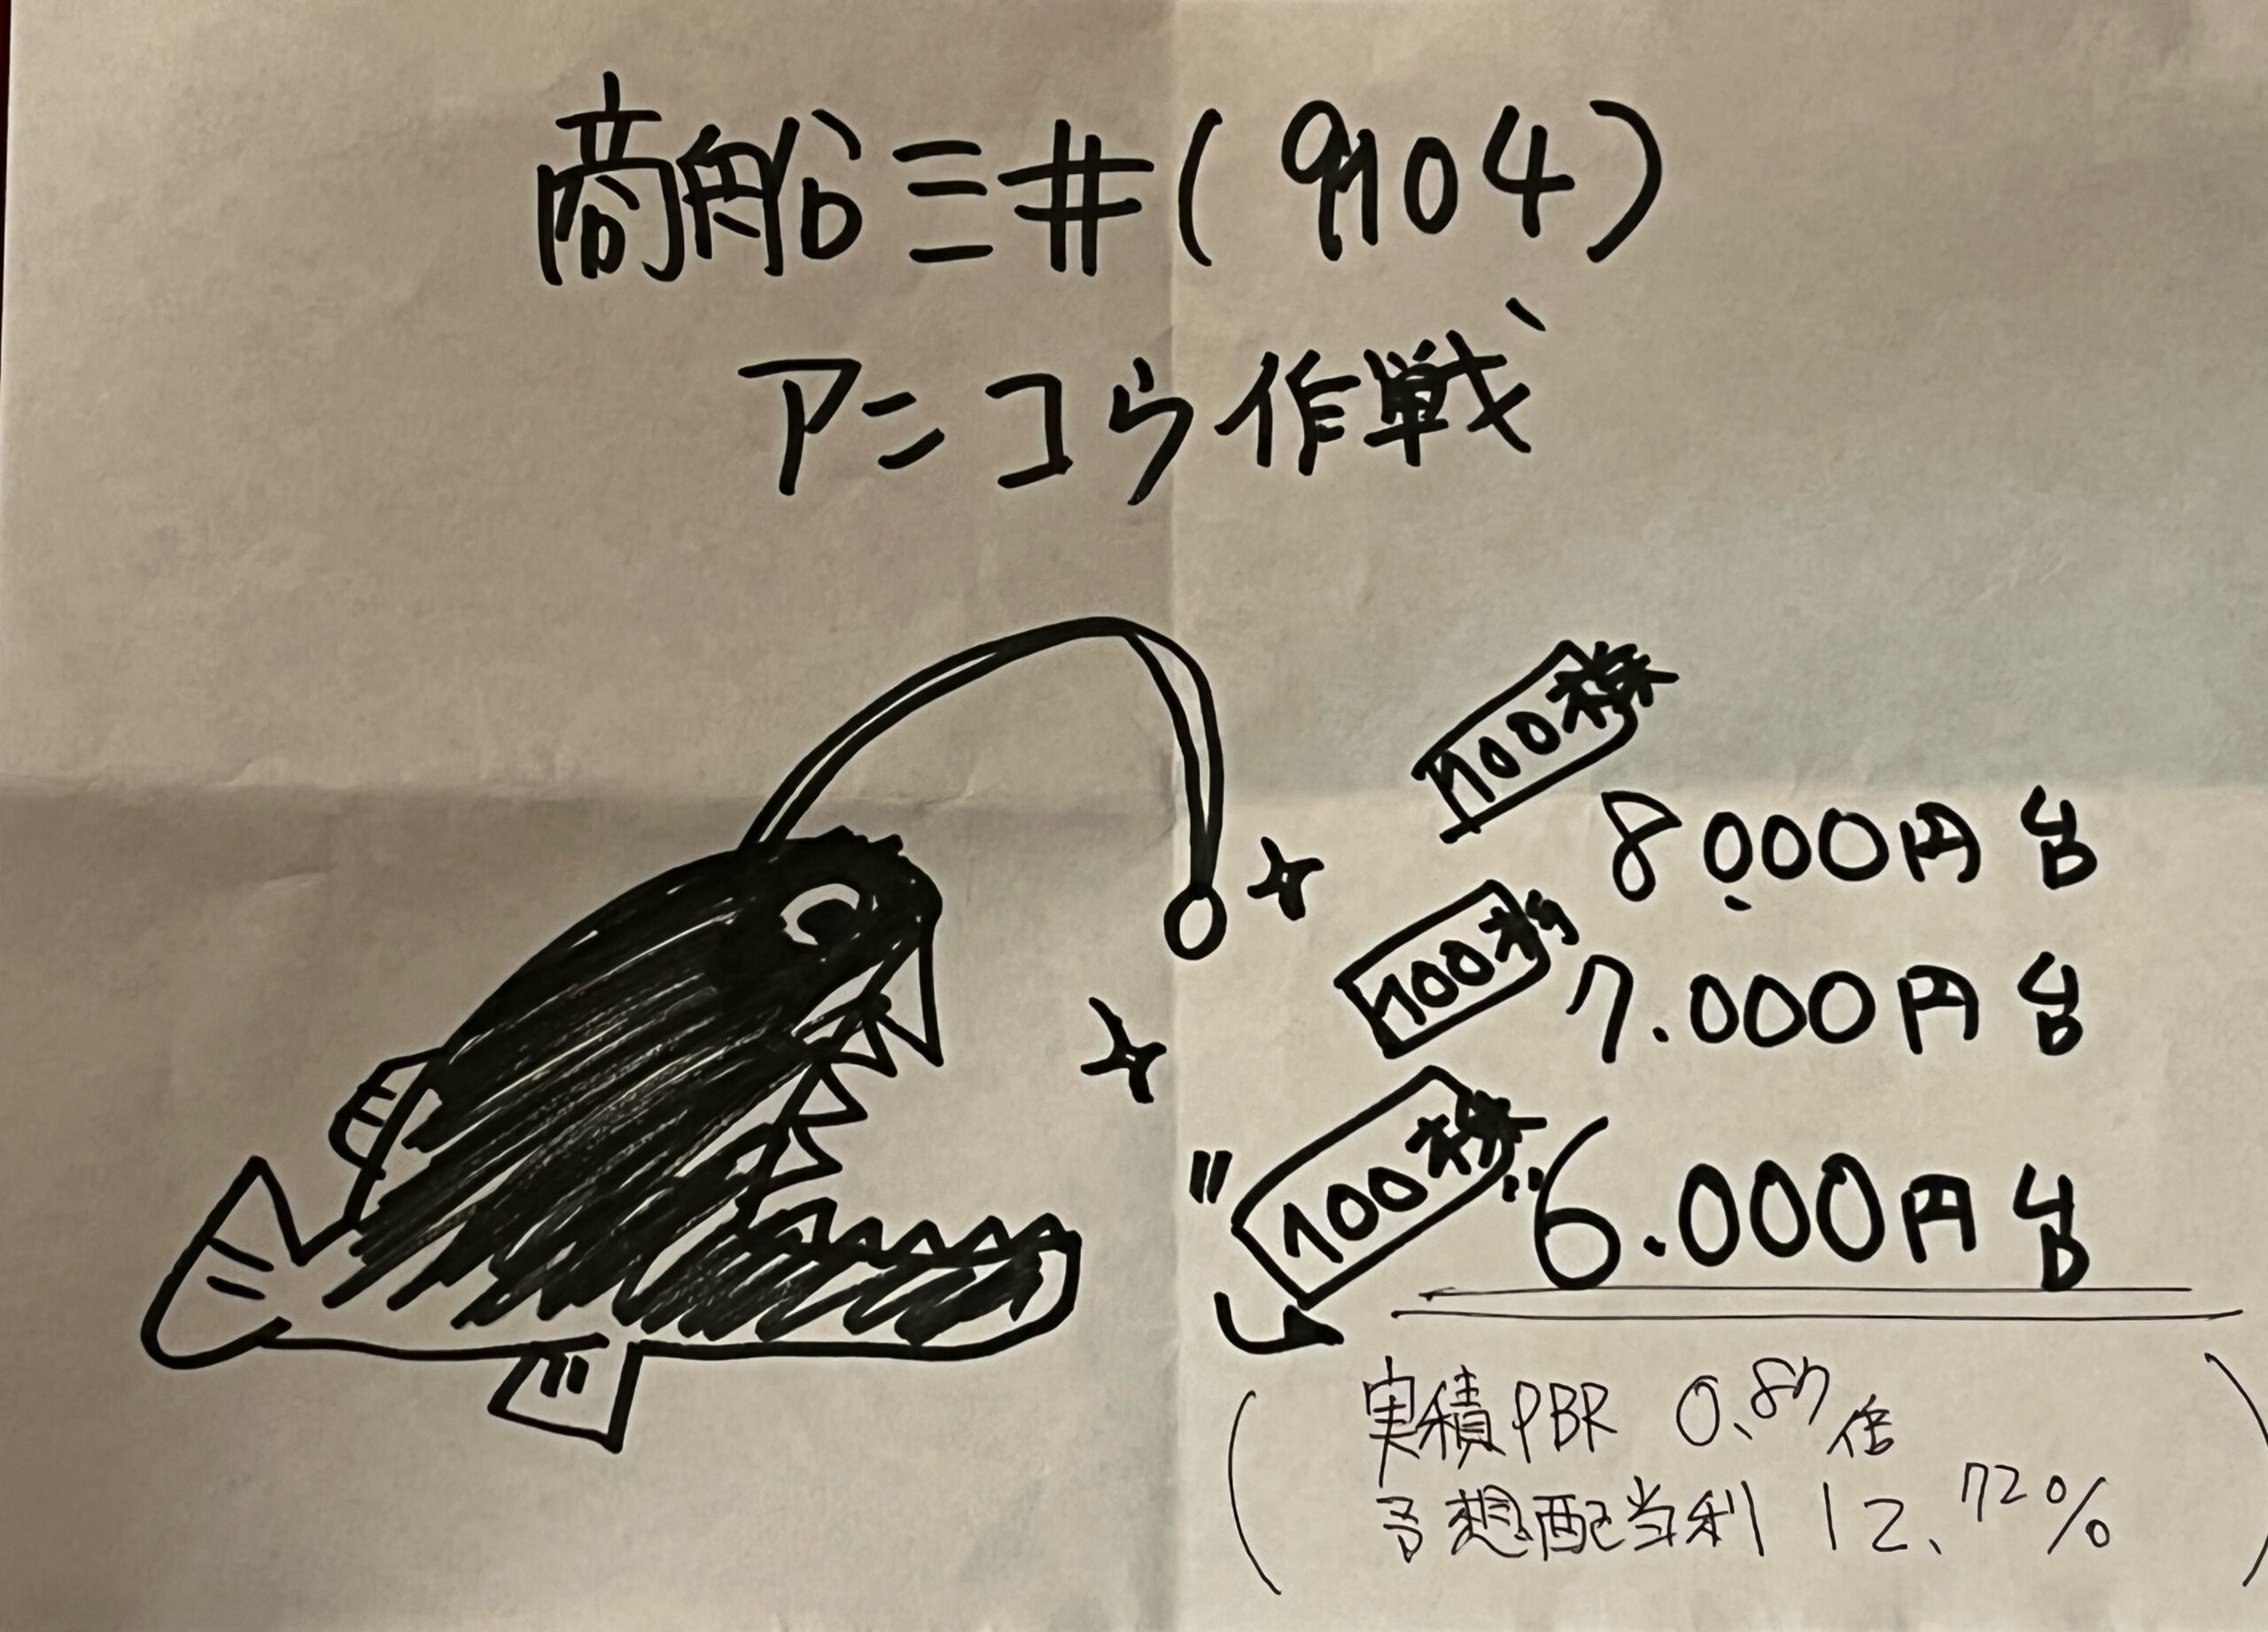 商船三井(9104)
アンコウ作戦
100株
8.000円台
100株
7.000円台
100株
6.000円台
実積PBR 0.87倍
予想配当利 12.72%